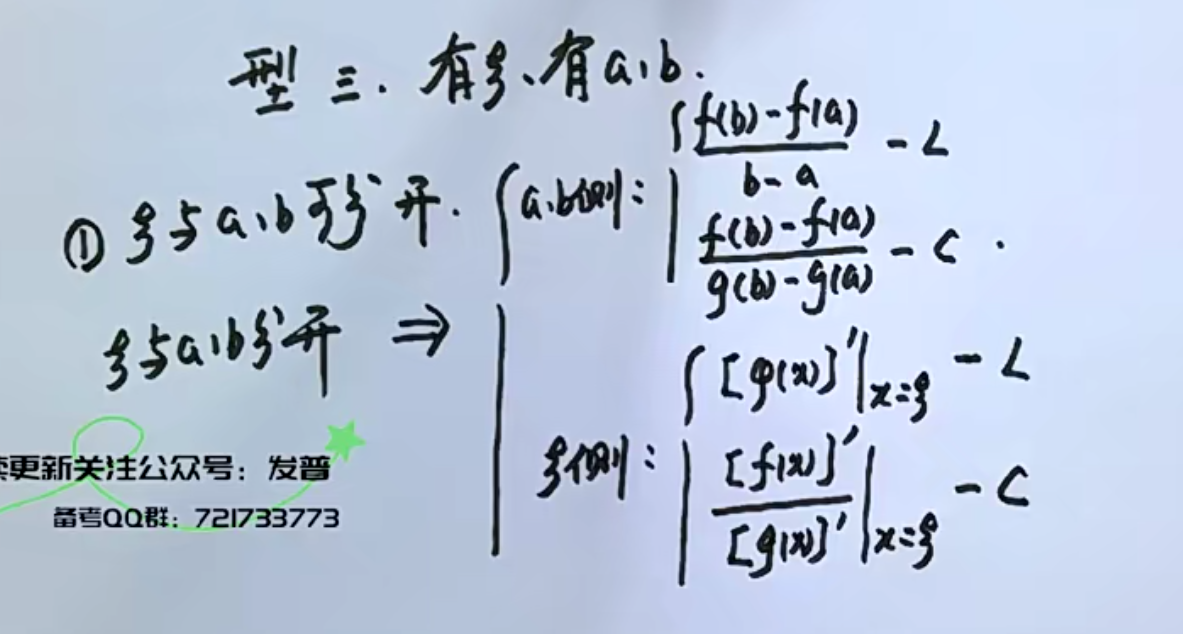 型三. 有ξ、有a,b.
① ξ与a,b可分开.
ξ与a,b分开 ⇒
a,b侧:
f(b)-f(a)
b-a
- L
f(b)-f(a)
g(b)-g(a)
- C.
ξ侧:
[φ(x)]'|x=ξ - L
[f(x)]'
[g(x)]'
|x=ξ - C
更新关注公众号：发普
备考QQ群：721733773